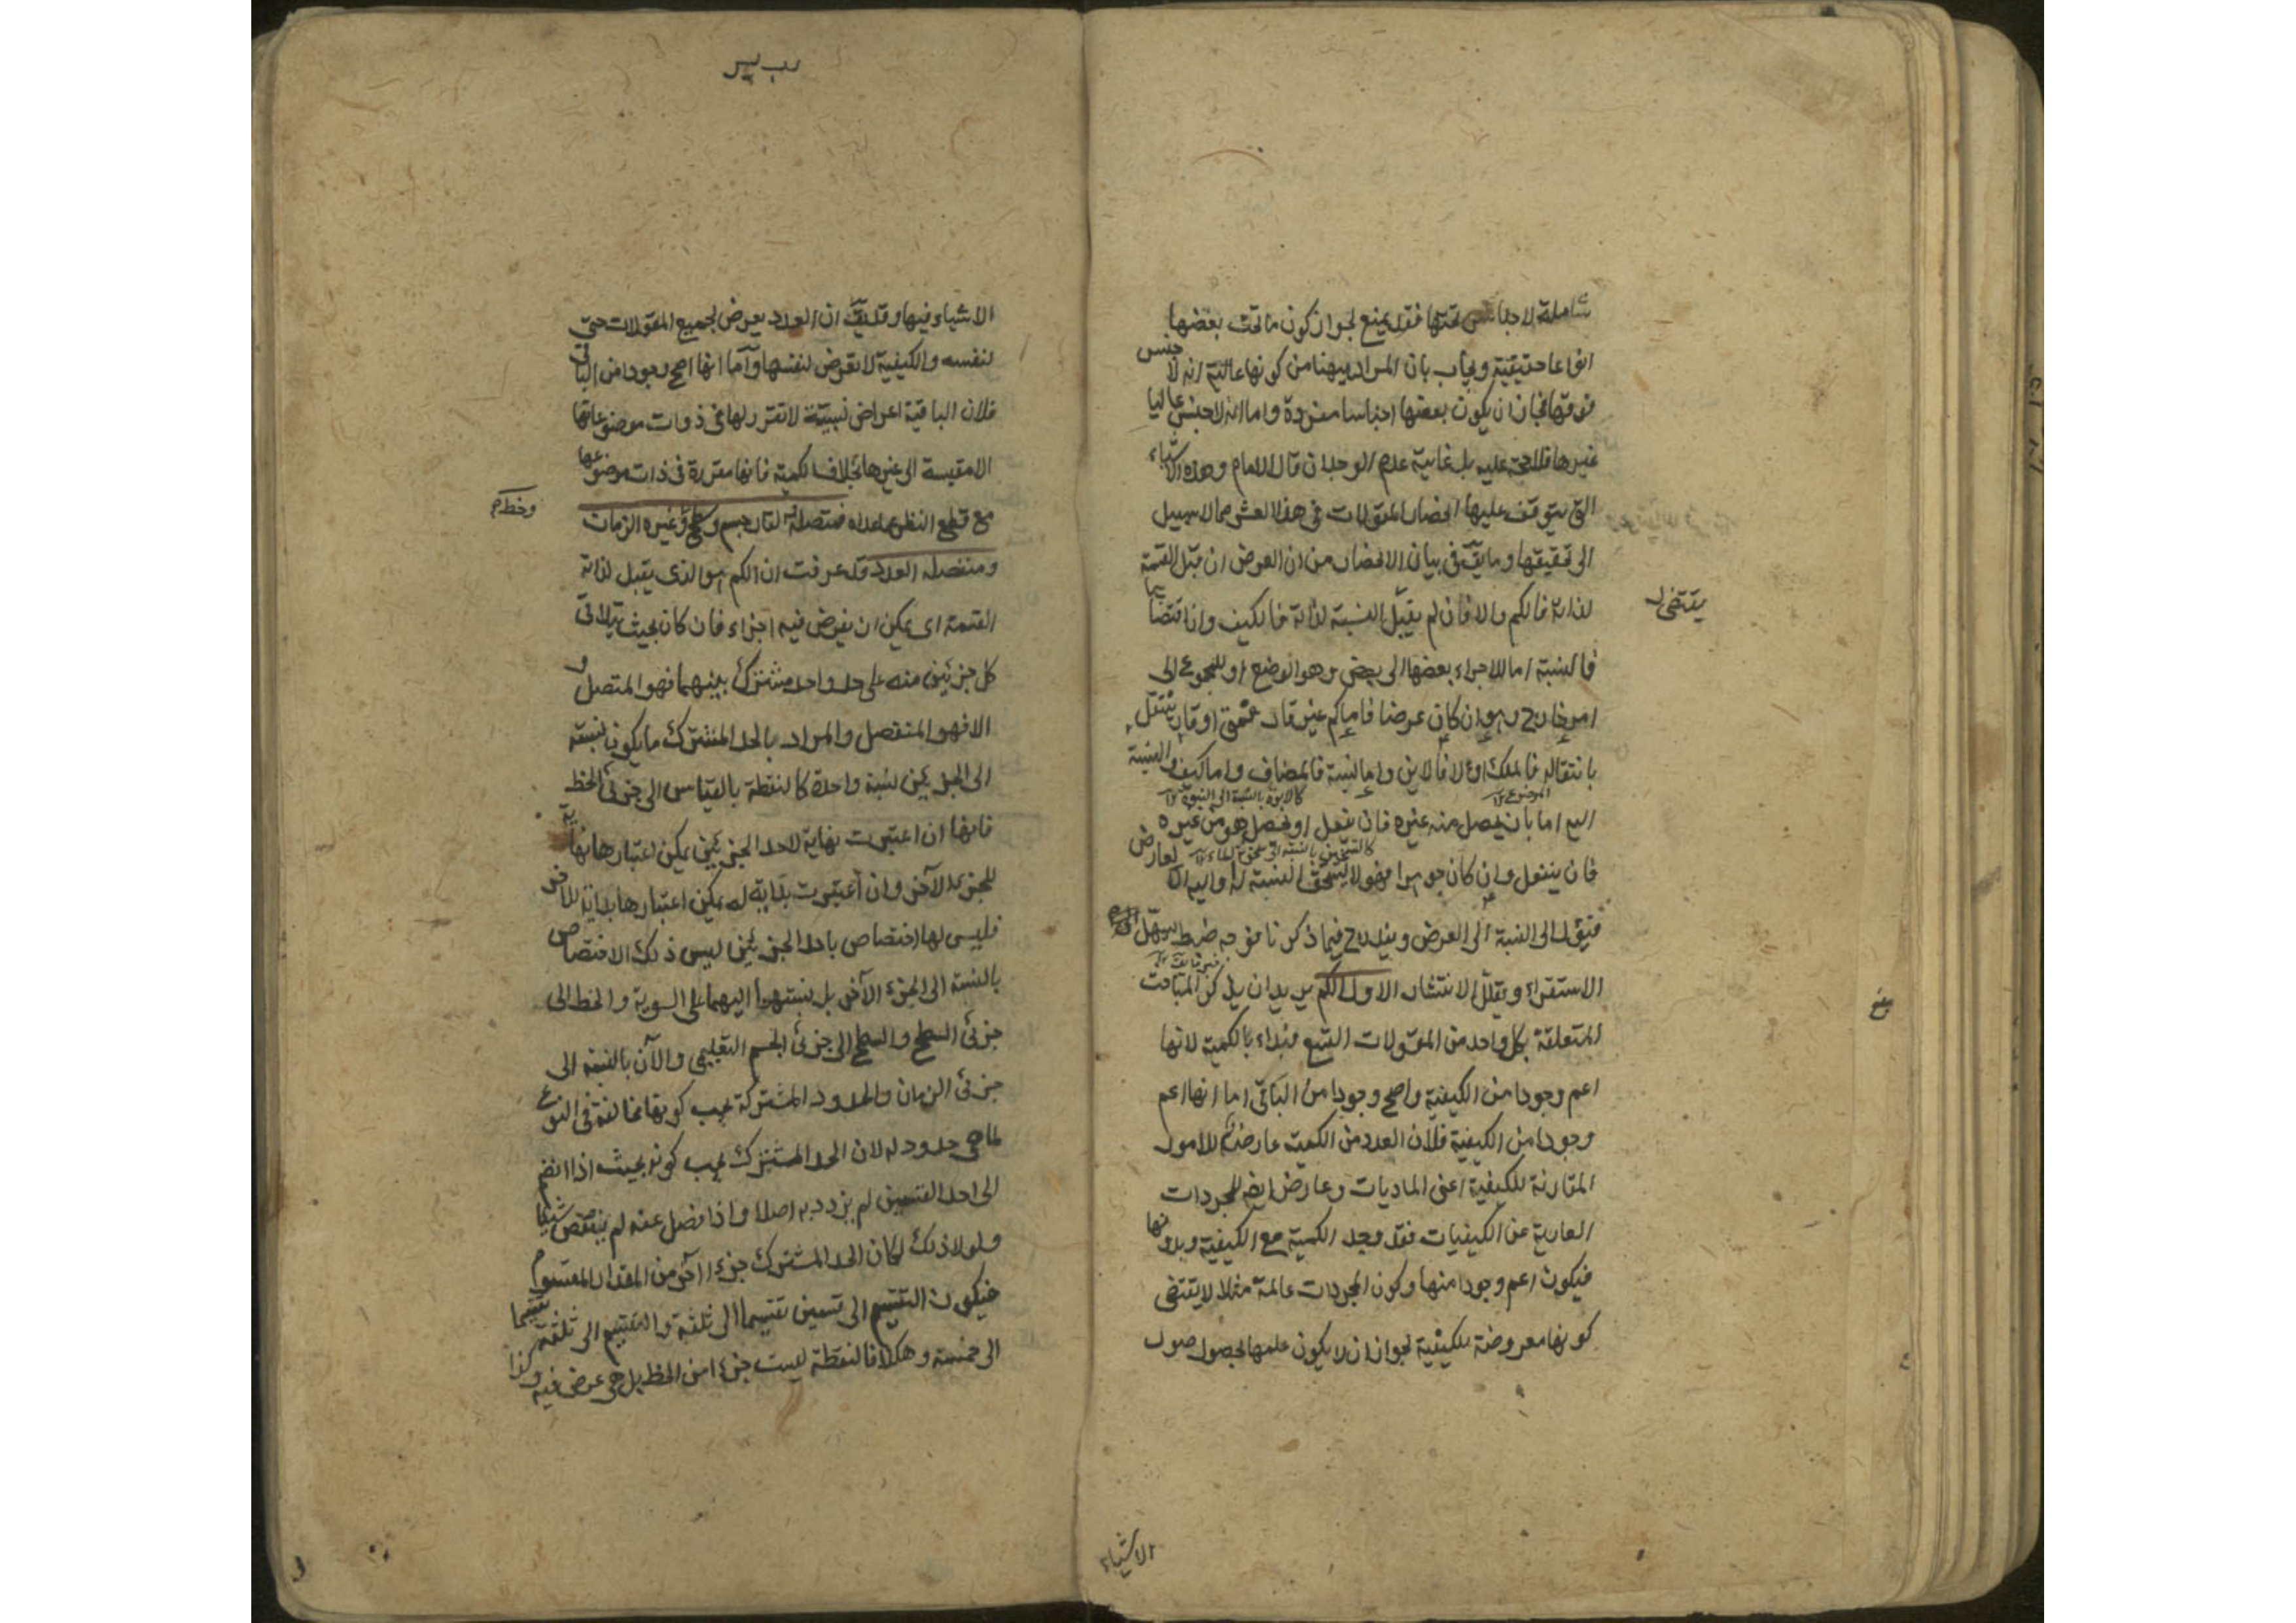 شاملة لاجناس تحتها فقد يمنع لجواز كون ما تحت بعضها
انواعا حقيقية ويجاب بان المراد ههنا من كونها عالية انه لا جنس
فوقها فجاز ان يكون بعضها اجناسا مفردة واما انه لا جنس عاليا
غيرها فلا حجة عليه بل غايته عدم الوجدان قال الامام وهذه الاشياء
التى يتوقف عليها انحصار المقولات فى هذا العشر مما لا سبيل
الى تحقيقها وما يق فى بيان الانحصار من ان العرض ان قبل القسمة
لذاته فالكم والا فان لم يقبل النسبة لذاته فالكيف وان اقتضاها
يقتضى
فالنسبة اما للاجزاء بعضها الى بعض وهو الوضع او للمجموع الى
امر خارج وهو ان كان عرضا فاما كم غير قار فمتى او قار ينتقل
بانتقاله فالملك او لا فالاين واما نسبة فالمضاف واما كيف والنسبة
كالابوة بالنسبة الى البنوة
اليه اما بان يحصل منه غيره فان يفعل او يحصل هو من غيره
فان ينفعل وان كان جوهرا فهو لا يستحق النسبة له واليه الا لعارض
فيؤل الى النسبة الى العرض ويندرج فيما ذكرنا فهو وجه ضبط يسهل
الاستقراء ويقلل الانتشار الاول الكم يريد ان يذكر المباحث
المتعلقة بكل واحد من المقولات التسع فبداء بالكمية لانها
اعم وجودا من الكيفية واصح وجودا من الباقى اما انها اعم
وجودا من الكيفية فلان العدد من الكميت عارض للامور
المقارنة للكيفية اعنى الماديات وعارض ايضا للمجردات
العارية عن الكيفيات فقد وجد الكمية مع الكيفية وبدونها
فيكون اعم وجودا منها وكون المجردات عالمة مثلا لا يقتضى
كونها معروضة للكيفية لجواز ان لا يكون علمها بحصول صور
الاشياء
الاشياء فيها وقد يق ان العدد يعرض لجميع المقولات حتى
لنفسه والكيفية لا تعرض لنفسها واما انها اصح وجودا من الباقى
فلان الباقية اعراض نسبية لا تقرر لها فى ذوات موضوعاتها
الا مقيسة الى غيرها بخلاف الكمية فانها مقررة فى ذات موضوعها
مع قطع النظر عما عداه فمتصله القار جسم وسطح وغيره الزمان
وخط
ومنفصله العدد قد عرفت ان الكم هو الذى يقبل لذاته
القسمة اى يمكن ان يفرض فيه اجزاء فان كان بحيث يتلاقى
كل جزئين منه على حد واحد مشترك بينهما فهو المتصل و
الا فهو المنفصل والمراد بالحد المشترك ما يكون نسبته
الى الجزئين نسبة واحدة كالنقطة بالقياس الى جزئى الخط
فانها ان اعتبرت نهاية لاحد الجزئين يمكن اعتبارها نهاية
للجزء الآخر وان اعتبرت بداية له يمكن اعتبارها بداية للآخر
فليس لها اختصاص باحد الجزئين ليس ذلك الاختصاص
بالنسبة الى الجزء الآخر بل نسبتها اليهما على السوية والخط الى
جزئى السطح والسطح الى جزئى الجسم التعليمى والآن بالنسبة الى
جزئى الزمان والحدود المشتركة يجب كونها مخالفة فى النوع
لما هى حدود له لان الحد المشترك يجب كونه بحيث اذا انضم
الى احد القسمين لم يزدد به اصلا واذا فصل عنه لم ينتقص شيئا
ولولا ذلك لكان الحد المشترك جزءا آخر من المقدار المقسوم
فيكون التقسيم الى قسمين تقسيما الى ثلثة والتقسيم الى ثلثة تقسيما
الى خمسة وهكذا فالنقطة ليست جزءا من الخط بل هى عرض فيه وكذا